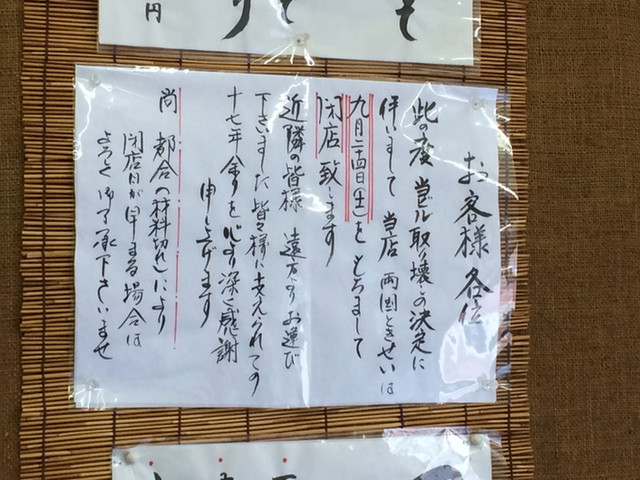 お客様 各位
此の度 当ビル取り壊しの決定に
伴いまして 当店 両国ときせいは
九月二十四日(土)をもちまして
閉店致します
近隣の皆様 遠方よりお運び
下さいました皆々様に支えられての
十七年余りを心より深く感謝
申し上げます
尚 都合(材料切れ)により
閉店日が早まる場合は
よろしく御了承下さいませ
円